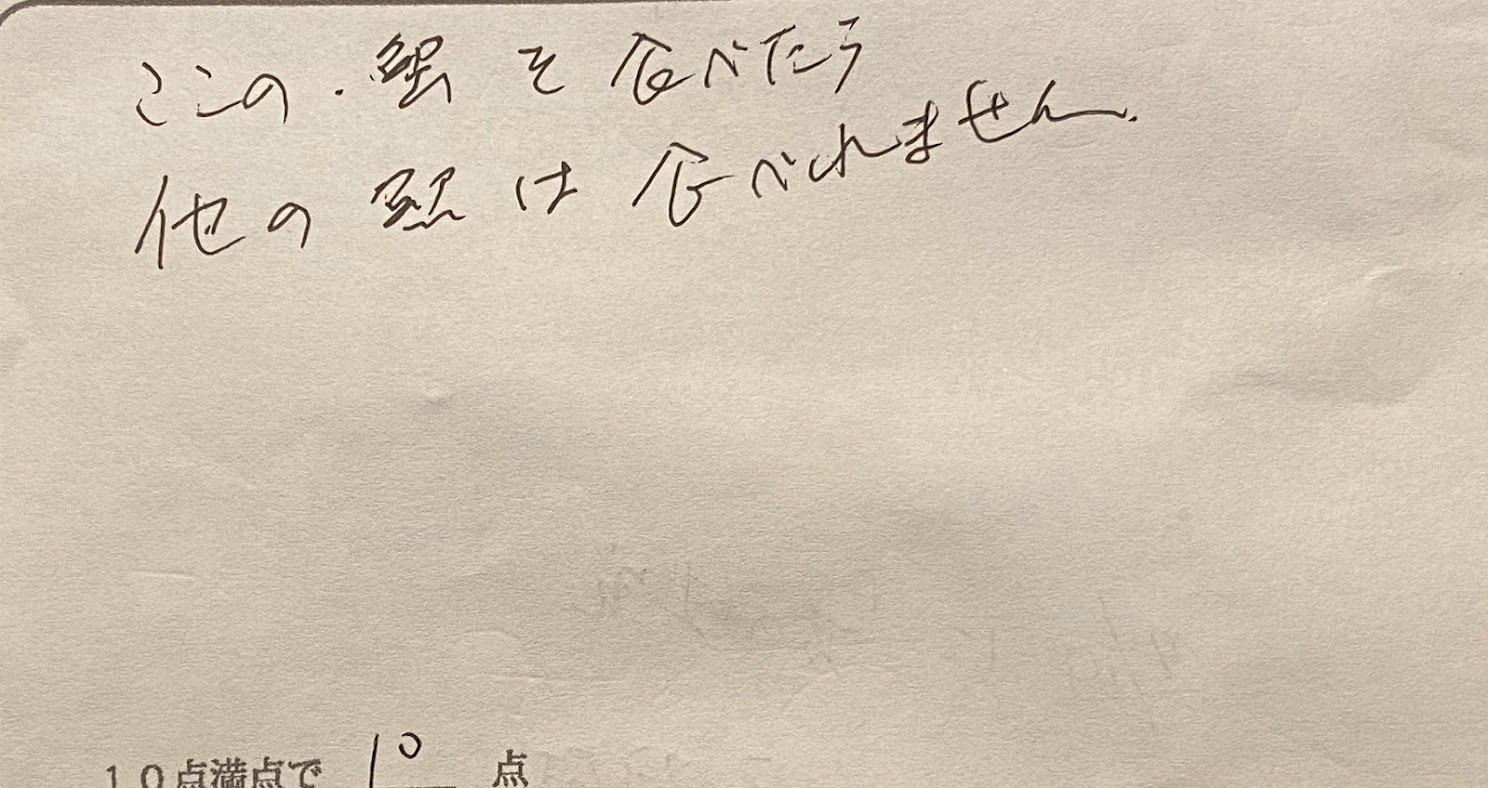 ここの.蟹を食べたら
他の蟹は食べれません.
10点満点で 10 点